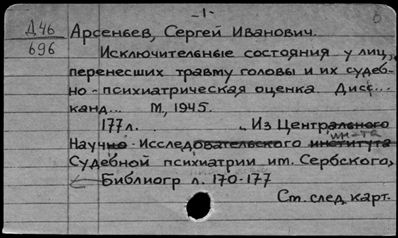 -1-
Д 46
696
Арсеньев, Сергей Иванович.
Исключительные состояния у лиц,
перенесших травму головы и их судеб-
но-психиатрическая оценка. Дисс...
канд... М, 1945.
177 л. . Из Центрального
ин-та
Научно-Исследовательского института
Судебной психиатрии им. Сербского,
Библиогр л. 170-177
См. след. карт.